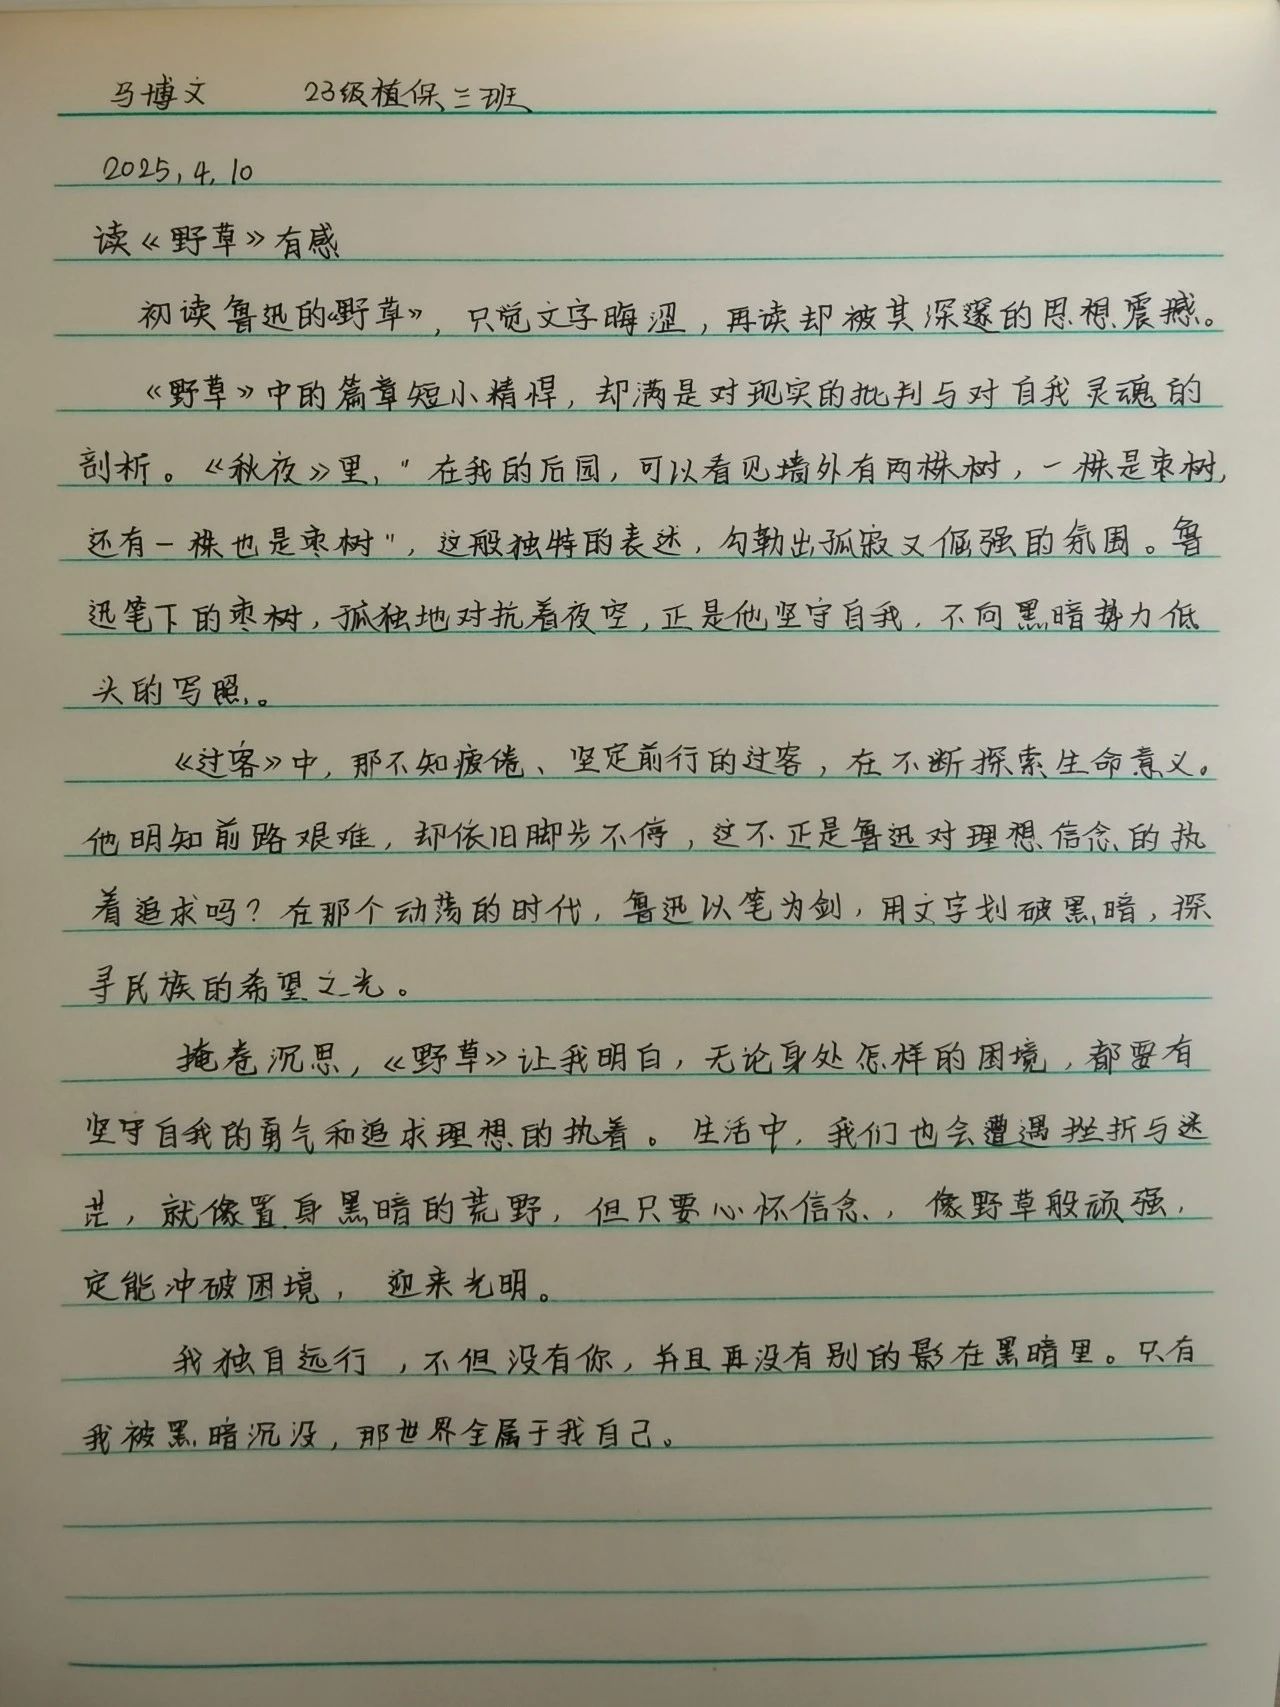 马博文 23级植保三班
2025,4,10
读《野草》有感
初读鲁迅的《野草》，只觉文字晦涩，再读却被其深邃的思想震撼。
《野草》中的篇章短小精悍，却满是对现实的批判与对自我灵魂的
剖析。《秋夜》里，"在我的后园，可以看见墙外有两株树，一株是枣树，
还有一株也是枣树"，这般独特的表述，勾勒出孤寂又倔强的氛围。鲁
迅笔下的枣树，孤独地对抗着夜空，正是他坚守自我，不向黑暗势力低
头的写照。
《过客》中，那不知疲倦、坚定前行的过客，在不断探索生命意义。
他明知前路艰难，却依旧脚步不停，这不正是鲁迅对理想信念的执
着追求吗？在那个动荡的时代，鲁迅以笔为剑，用文字划破黑暗，探
寻民族的希望之光。
掩卷沉思，《野草》让我明白，无论身处怎样的困境，都要有
坚守自我的勇气和追求理想的执着。生活中，我们也会遭遇挫折与迷
茫，就像置身黑暗的荒野，但只要心怀信念，像野草般顽强，
定能冲破困境，迎来光明。
我独自远行，不但没有你，并且再没有别的影在黑暗里。只有
我被黑暗沉没，那世界全属于我自己。